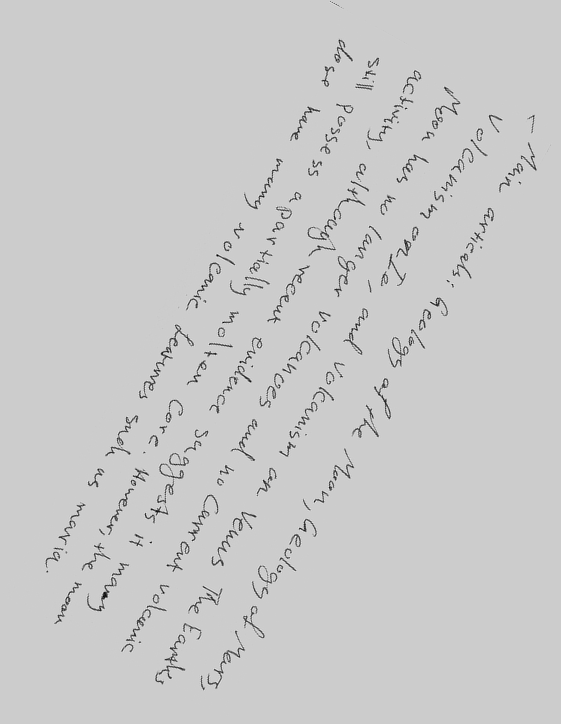 - Main articals: Geology of the Moon, Geology of Mars,
Volcanism on Io, and volcanism on Venus The Earth's
Moon has no langer volcanoes and no current volcanic
activity, although recent evidence suggests it many
still possess a partially molten core. However, the moon
dose have many volcanic features such as maria.